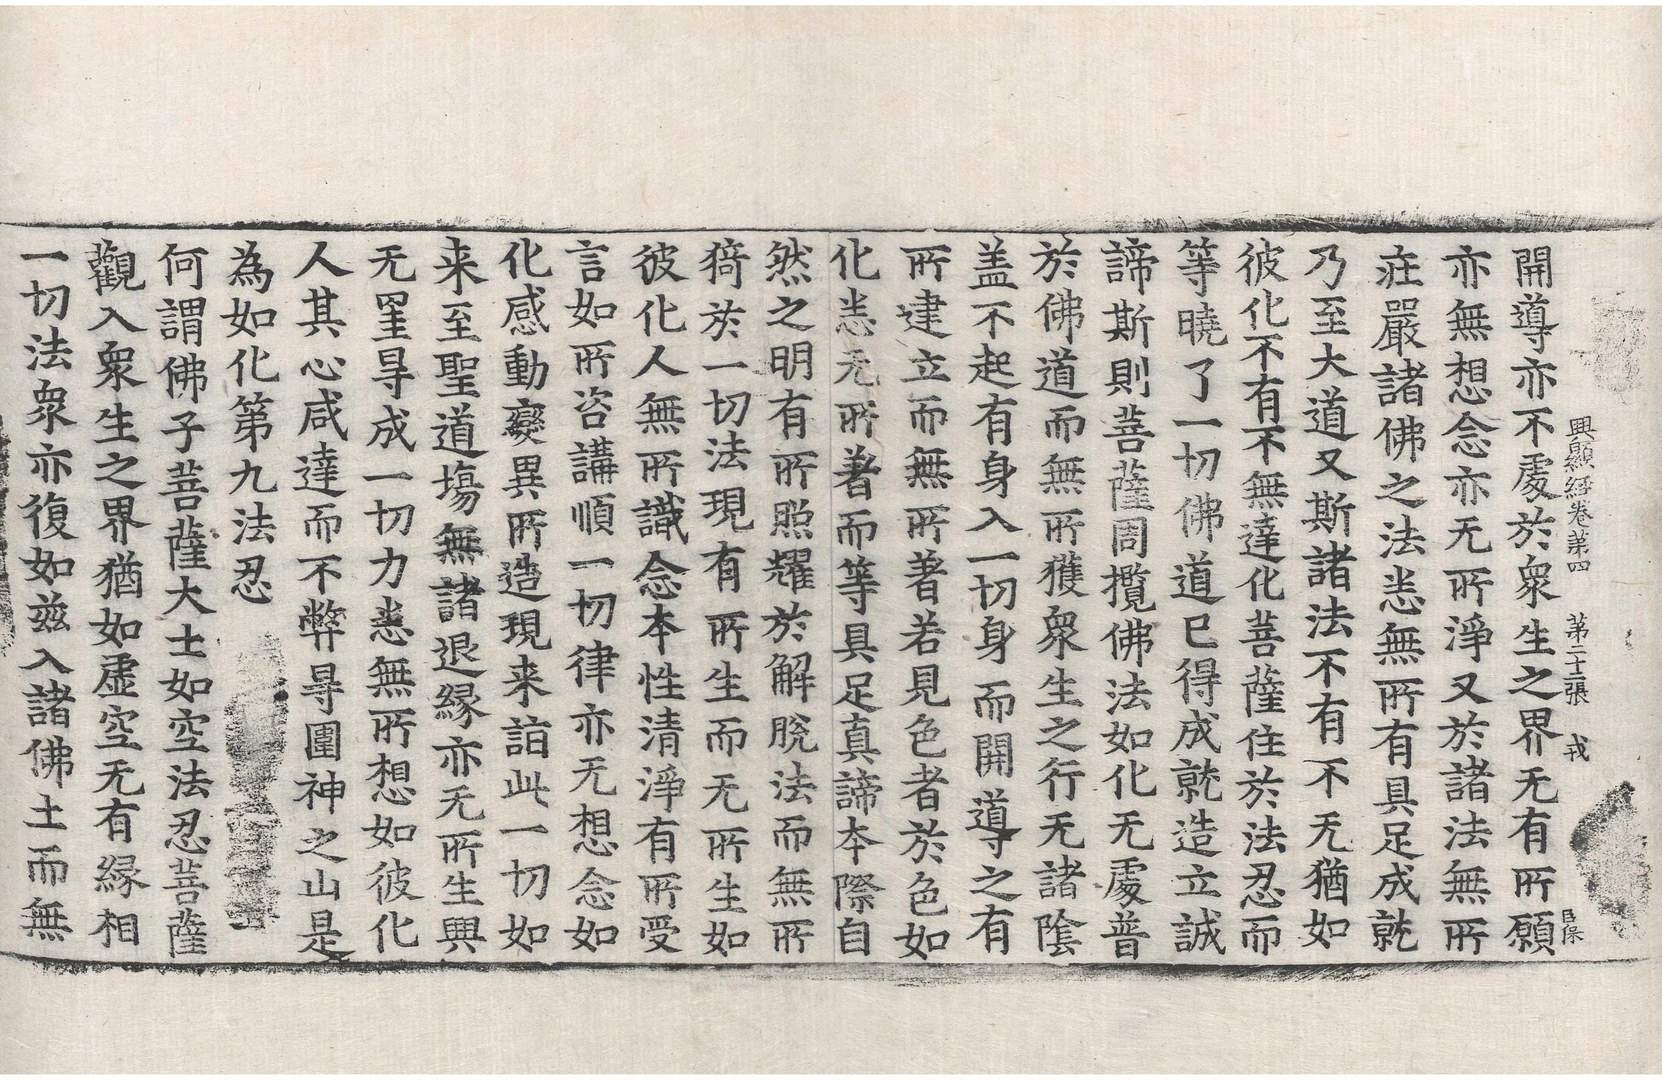 興顯經卷第四　第二十二張　戎
開導亦不處於衆生之界无有所願
亦無想念亦无所淨又於諸法無所
莊嚴諸佛之法悉無所有具足成就
乃至大道又斯諸法不有不无猶如
彼化不有不無達化菩薩住於法忍而
等曉了一切佛道已得成就造立誠
諦斯則菩薩周攬佛法如化无處普
於佛道而無所獲衆生之行无諸陰
盖不起有身入一切身而開導之有
所建立而無所著若見色者於色如
化悉无所著而等具足真諦本際自
然之明有所照耀於解脫法而無所
猗於一切法現有所生而无所生如
彼化人無所識念本性清淨有所受
言如所咨講順一切律亦无想念如
化感動變異所造現来詣此一切如
来至聖道塲無諸退緣亦无所生興
无罣㝵成一切力悉無所想如彼化
人其心咸達而不弊㝵圍神之山是
為如化第九法忍
何謂佛子菩薩大士如空法忍菩薩
觀入衆生之界猶如虛空无有緣相
一切法衆亦復如兹入諸佛土而無